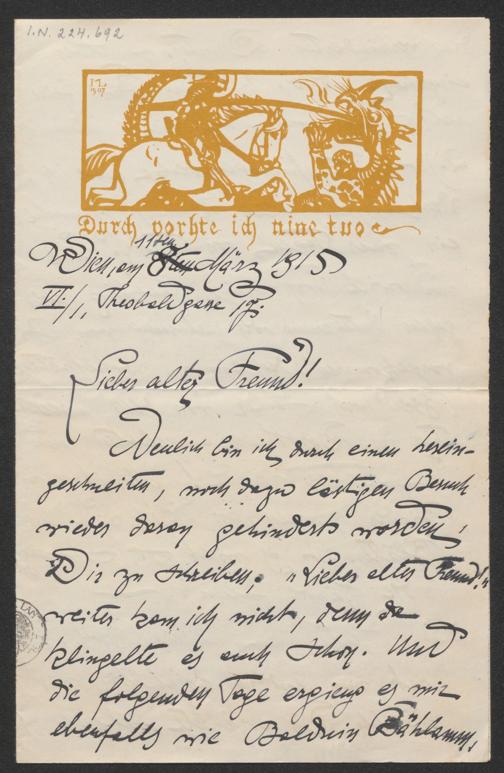 I.N. 224.692
Durch vorhte ich nine tuo
Wien, am 11ten März 1915
VI./1, Theobaldgasse
Lieber alter Freund!
Neulich bin ich durch einen herein-
geschneiten, noch dazu lästigen Besuch
wieder daran gehindert worden,
Dir zu schreiben; „Lieber alter Freund!"
weiter kam ich nicht, denn da
klingelte es auch schon. Und
die folgenden Tage ergieng es mir
ebenfalls wie Balduin Bählamm,